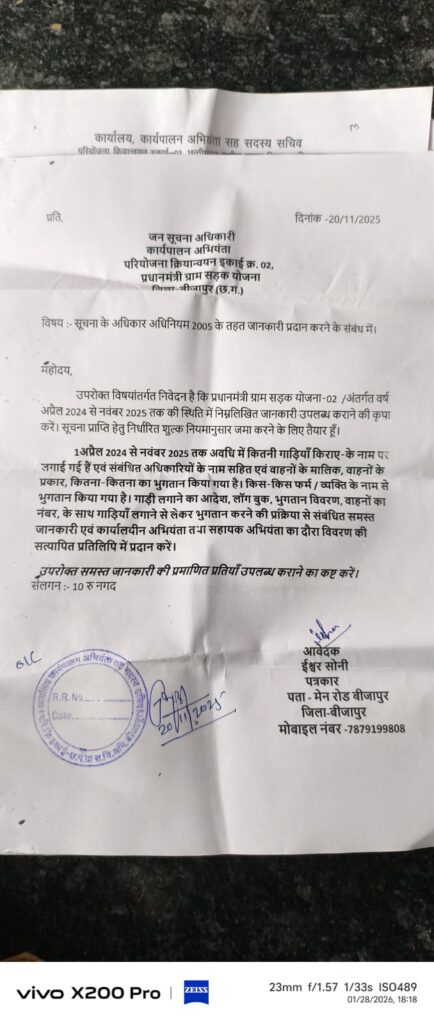 कार्यालय, कार्यपालन अभियंता सह सदस्य सचिव
प्रति,
दिनांक -20/11/2025
जन सूचना अधिकारी
कार्यपालन अभियंता
परियोजना क्रियान्वयन इकाई क्र. 02,
प्रधानमंत्री ग्राम सड़क योजना
जिला-बीजापुर (छ.ग.)
विषय :- सूचना के अधिकार अधिनियम 2005 के तहत जानकारी प्रदान करने के संबंध में।
महोदय,
उपरोक्त विषयांतर्गत निवेदन है कि प्रधानमंत्री ग्राम सड़क योजना-02 /अंतर्गत वर्ष
अप्रैल 2024 से नवंबर 2025 तक की स्थिति में निम्नलिखित जानकारी उपलब्ध कराने की कृपा
करें। सूचना प्राप्ति हेतु निर्धारित शुल्क नियमानुसार जमा करने के लिए तैयार हूँ।
1अप्रैल 2024 से नवंबर 2025 तक अवधि में कितनी गाड़ियाँ किराए-के नाम पर
लगाई गई हैं एवं संबंधित अधिकारियों के नाम सहित एवं वाहनों के मालिक, वाहनों के
प्रकार, कितना-कितना का भुगतान किया गया है। किस-किस फर्म / व्यक्ति के नाम से
भुगतान किया गया है। गाड़ी लगाने का आदेश, लॉग बुक, भुगतान विवरण, वाहनों का
नंबर, के साथ गाड़ियाँ लगाने से लेकर भुगतान करने की प्रक्रिया से संबंधित समस्त
जानकारी एवं कार्यालयीन अभियंता तथा सहायक अभियंता का दौरा विवरण की
सत्यापित प्रतिलिपि में प्रदान करें।
उपरोक्त समस्त जानकारी की प्रमाणित प्रतियाँ उपलब्ध कराने का कष्ट करें।
संलगन :- 10 रु नगद
आवेदक
ईश्वर सोनी
पत्रकार
पता - मेन रोड बीजापुर
जिला-बीजापुर
मोबाइल नंबर -7879199808
R.R.No.
Date
20/11/2025
vivo X200 Pro
ZEISS
23mm f/1.57 1/33s ISO489
01/28/2026, 18:18